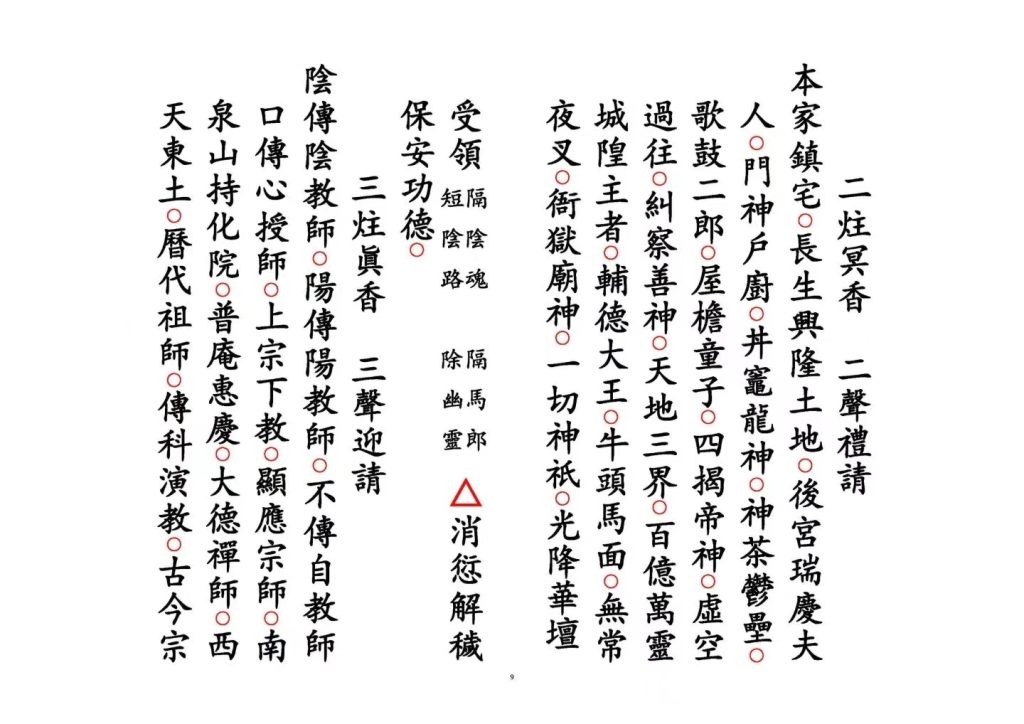 二炷冥香　二聲禮請
本家鎮宅○長生興隆土地○後宮瑞慶夫
人○門神戶廚○丼竈龍神○神荼鬱壘○
歌鼓二郎○屋檐童子○四揭帝神○虛空
過往○糾察善神○天地三界○百億萬靈
城隍主者○輔德大王○牛頭馬面○無常
夜叉○衙獄廟神○一切神祇○光降華壇
受領　隔陰魂　短陰路　隔馬郎　除幽靈　△消愆解穢
保安功德○
三炷眞香　三聲迎請
陰傳陰教師○陽傳陽教師○不傳自教師
口傳心授師○上宗下教○顯應宗師○南
泉山持化院○普庵惠慶○大德禪師○西
天東土○曆代祖師○傳科演教○古今宗
9